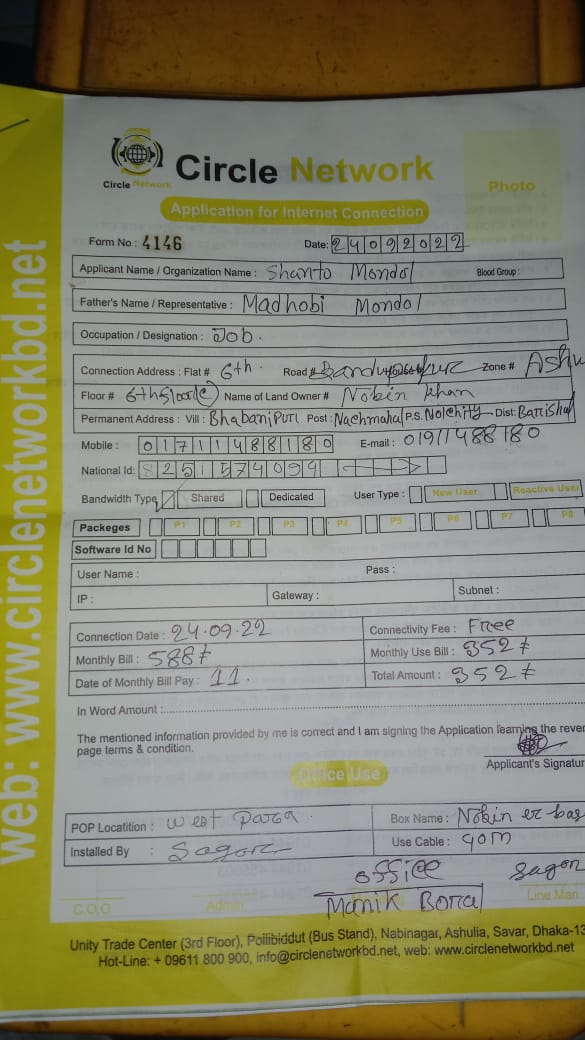 Circle Network
Circle Network
Photo
Application for Internet Connection
Form No : 4146 Date: 24092022
Applicant Name / Organization Name : Shanto Mondol Blood Group :
Father's Name / Representative : Madhobi Mondol
Occupation / Designation : Job.
Connection Address : Flat # 6th. Road # Zone # Ashu
Floor # 6th Name of Land Owner # Nobin Khan
Permanent Address : Vill : Bhabanipuri Post : Nachmahal P.S. Nolchity Dist: Barishal
Mobile : 01711488180 E-mail : 01911488180
National Id: 8251574094
Bandwidth Type Shared Dedicated User Type : New User Reactive User
Packeges P1 P2 P3 P4 P5 P6 P7 P8
Software Id No
User Name : Pass :
IP : Gateway : Subnet :
Connection Date : 24.09.22 Connectivity Fee : Free
Monthly Bill : 588৳ Monthly Use Bill : 352৳
Date of Monthly Bill Pay : 11. Total Amount : 352৳
In Word Amount :
The mentioned information provided by me is correct and I am signing the Application learning the rever
page terms & condition.
Applicant's Signatur
Office Use
POP Locatition : West Para Box Name : Nobin er bas
Installed By : Sagor Use Cable : 90m
office sagor
Manik Boral
C.O.O Admin Line Man
Unity Trade Center (3rd Floor), Pollibiddut (Bus Stand), Nabinagar, Ashulia, Savar, Dhaka-13
Hot-Line: + 09611 800 900, info@circlenetworkbd.net, web: www.circlenetworkbd.net
web: www.circlenetworkbd.net